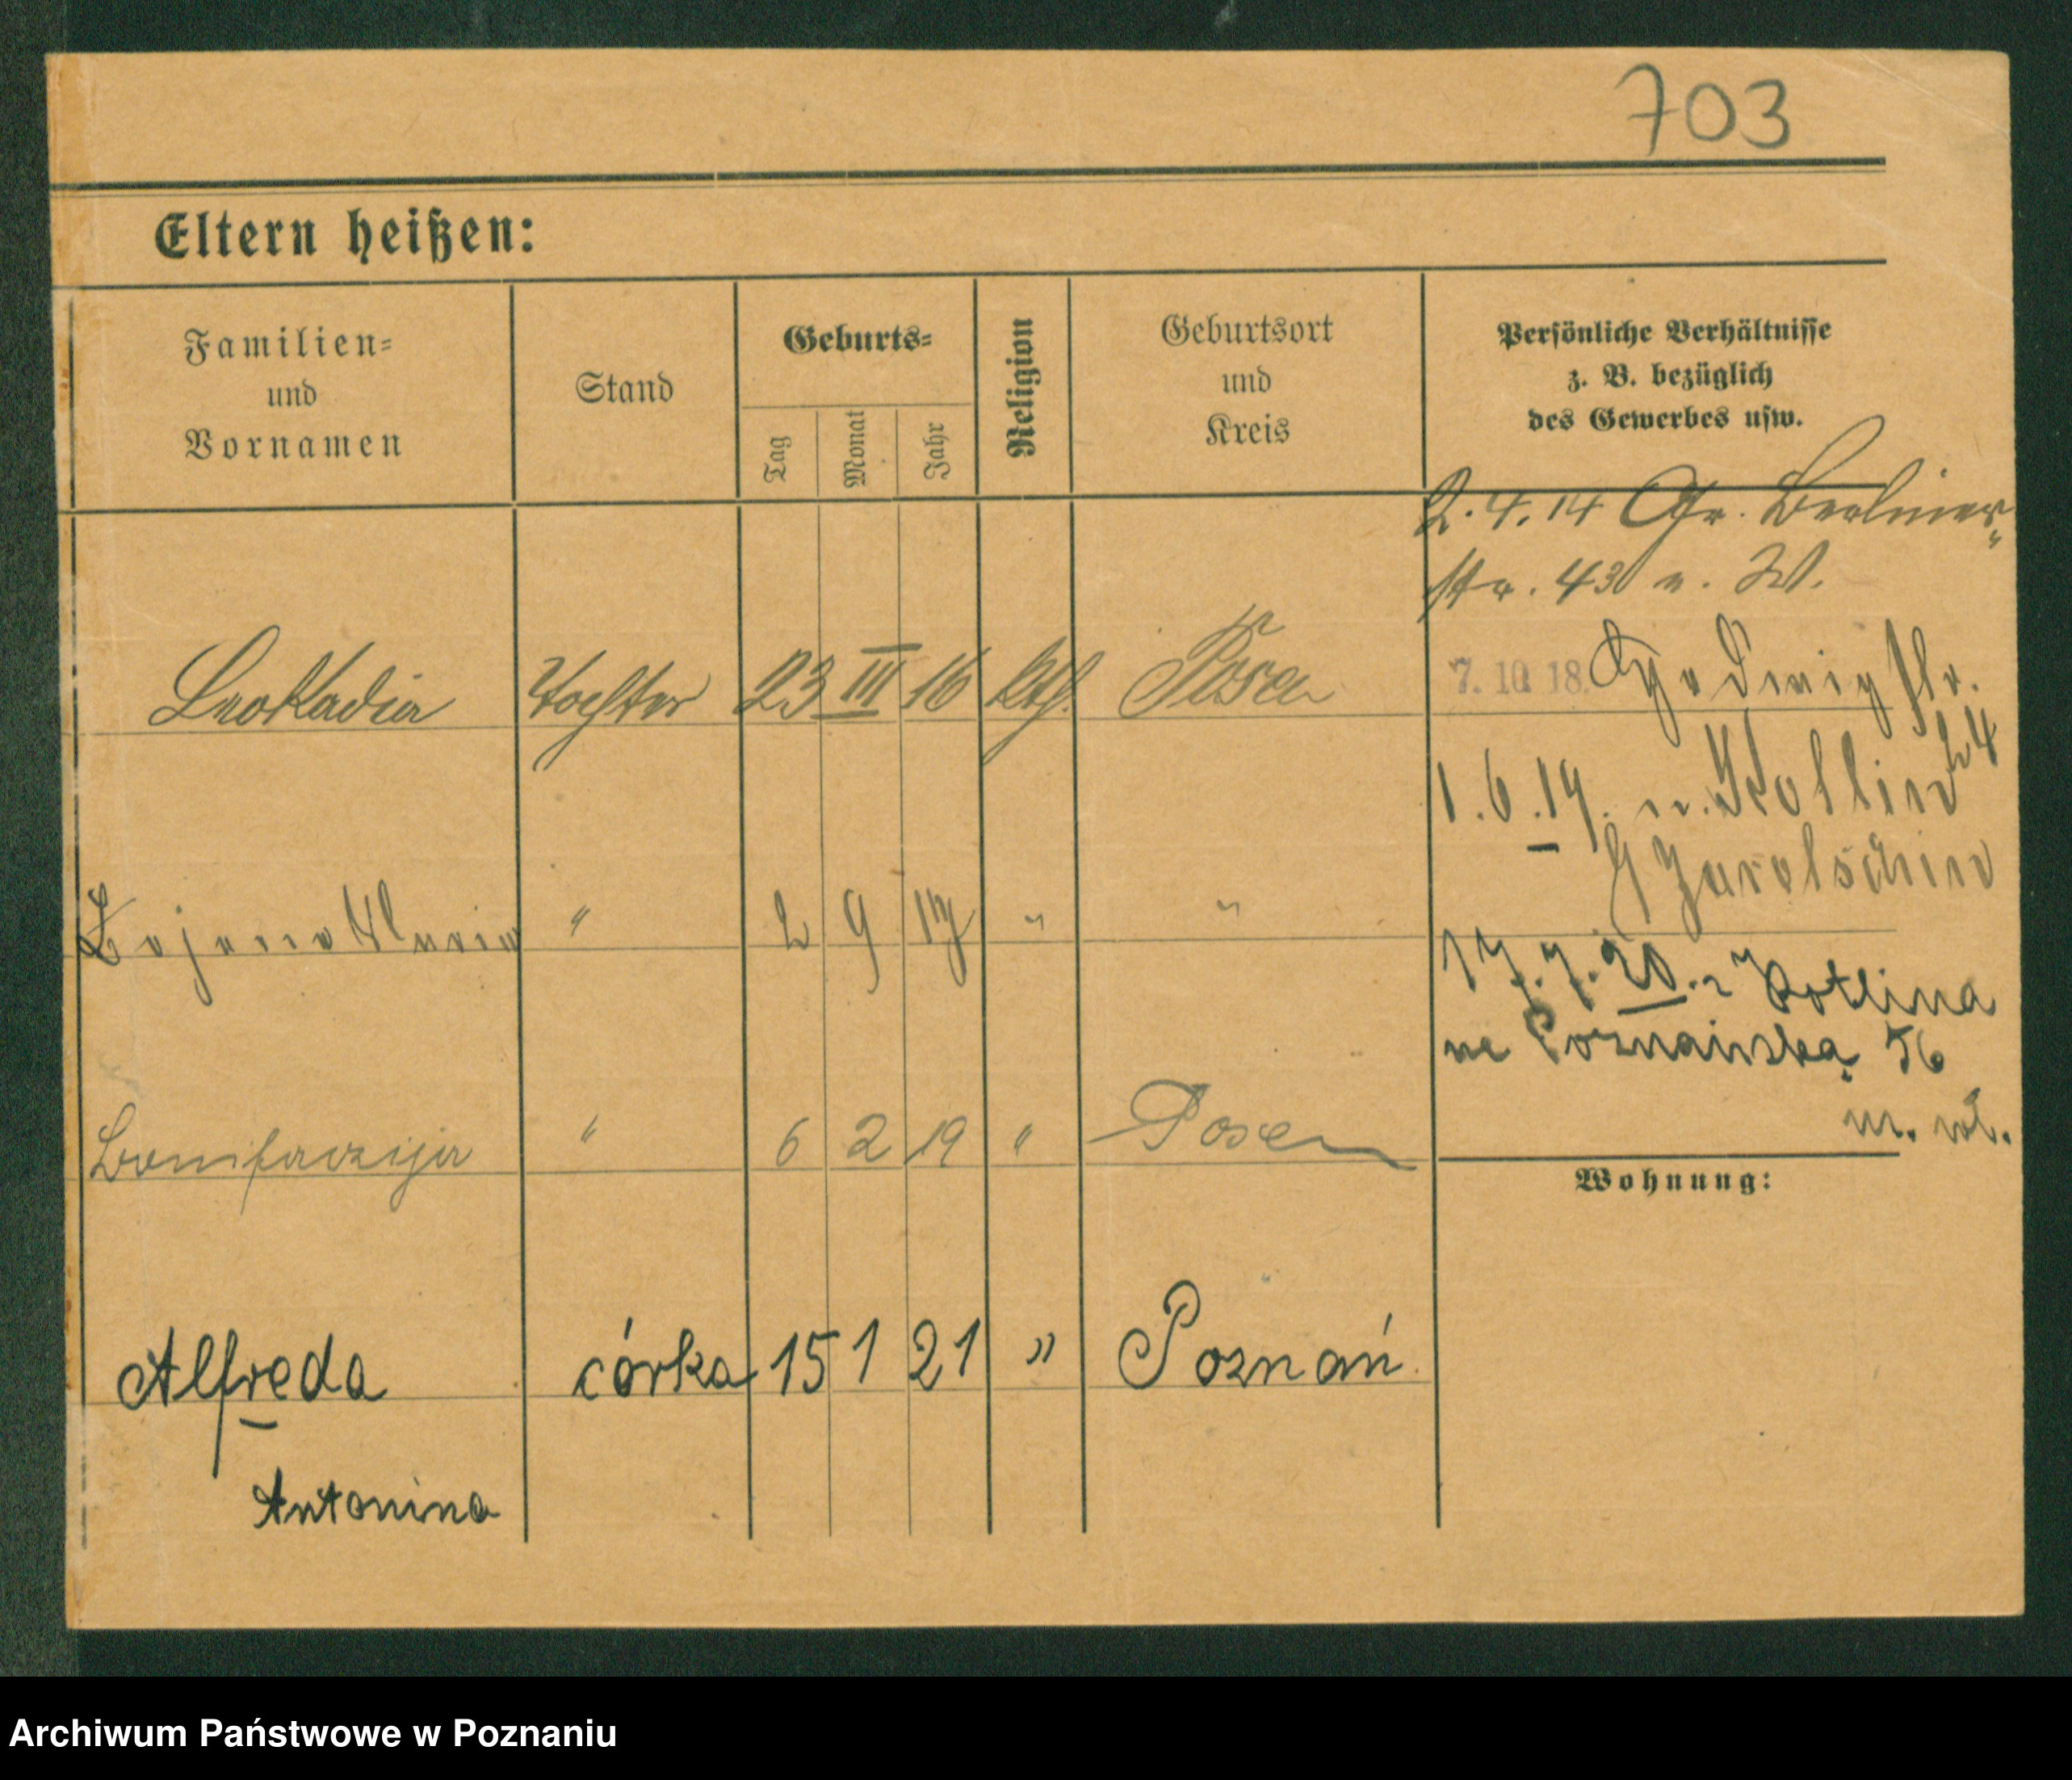 703
Eltern heißen:
Familien=
und
Vornamen
Stand
Geburts=
Tag
Monat
Jahr
Religion
Geburtsort
und
Kreis
Persönliche Verhältnisse
z. B. bezüglich
des Gewerbes usw.
2.4.14 Gr. Berliner
str. 43 v. W.
Leokadia Tochter 23 III 16 kth. Posen
7. 10. 18.
1.6.19. n. Kottlin
Maria " 2 9 17 " "
17.7.20. z Kotlina
na Poznańską 56
Bonifaczija " 6 2 19 " Posen
Wohnung:
Alfreda córka 15 1 21 " Poznań
Antonina
Archiwum Państwowe w Poznaniu